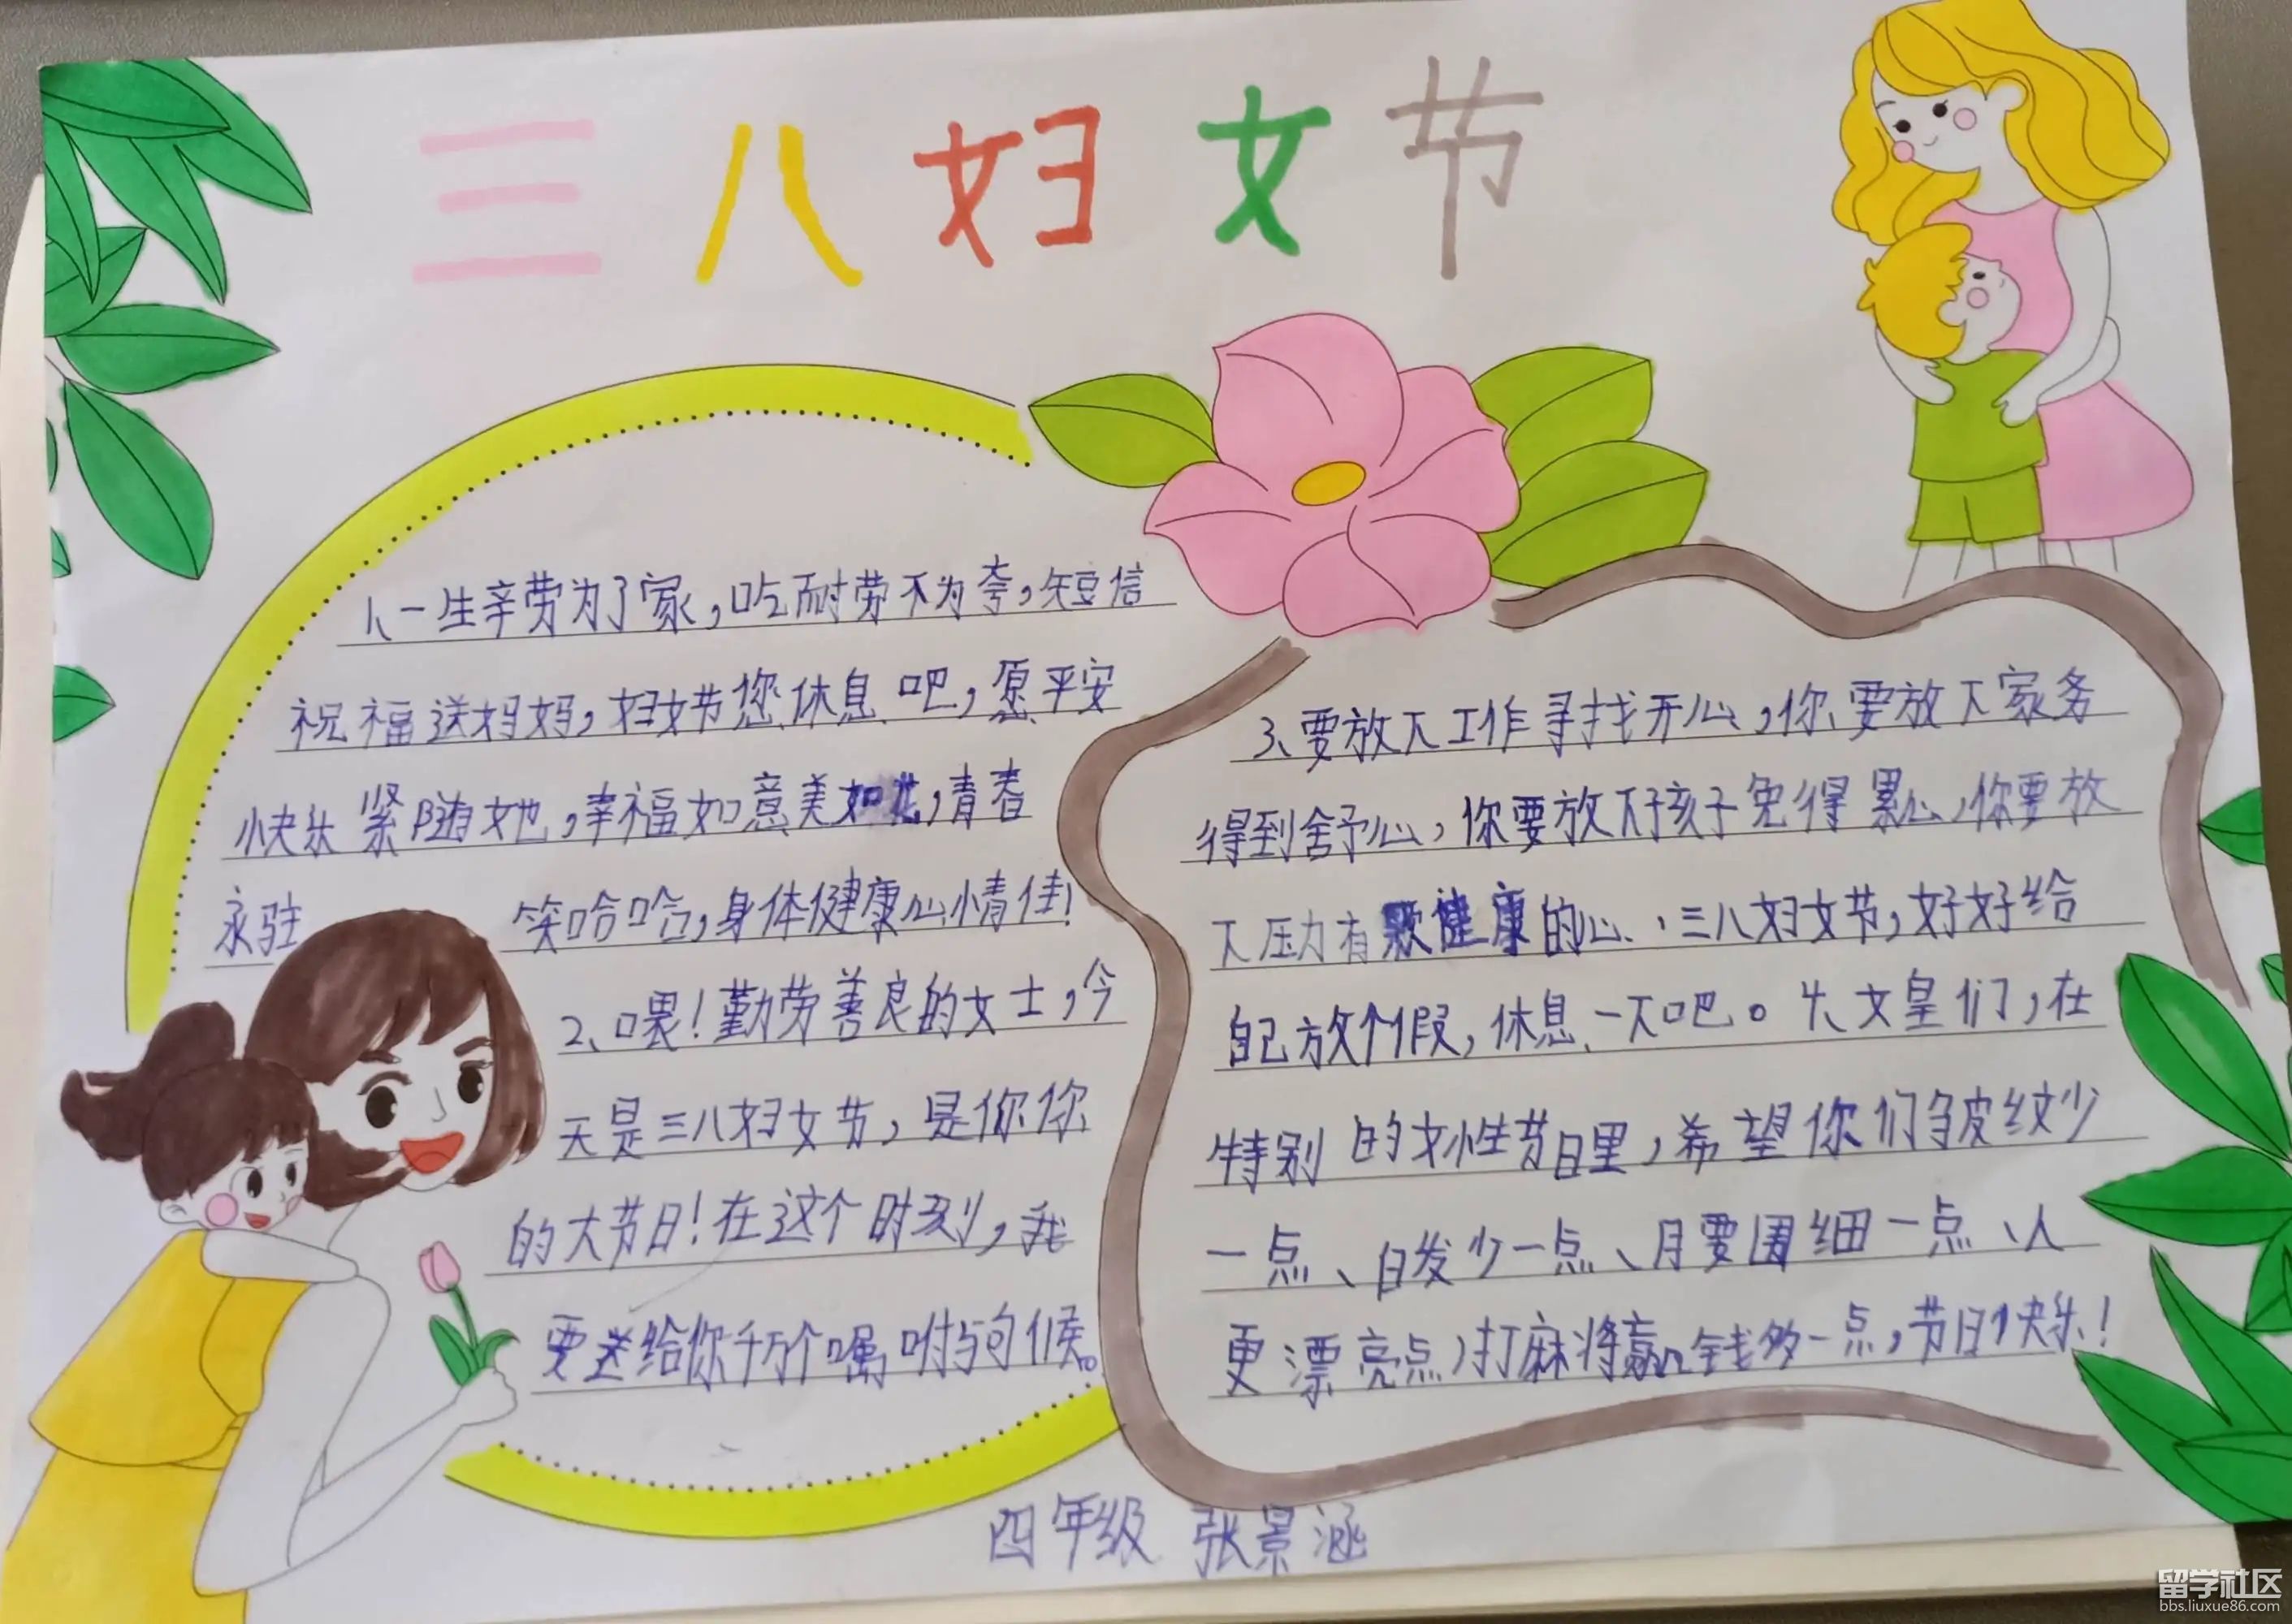 三八妇女节
1、一生辛劳为了家,吃耐劳不为夸,短信
祝福送妈妈,妇女节您休息吧,愿平安
快乐紧随她,幸福如意美如花,青春
永驻 笑哈哈,身体健康心情佳!
2、喂!勤劳善良的女士,今
天是三八妇女节,是你你
的大节日!在这个时刻,我
要送给你千万个嘱咐与句候。
3、要放下工作寻找开心,你要放下家务
得到舒心,你要放下孩子免得累心,你要放
下压力有颗健康的心、三八妇女节,好好给
自己放个假,休息一下吧。4、女皇们,在
特别的女性节日里,希望你们皱纹少
一点、白发少一点、月要围细一点、人
更漂亮点,打麻将赢钱多一点,节日快乐!
四年级 张景涵
留学社区
bbs.liuxue86.com